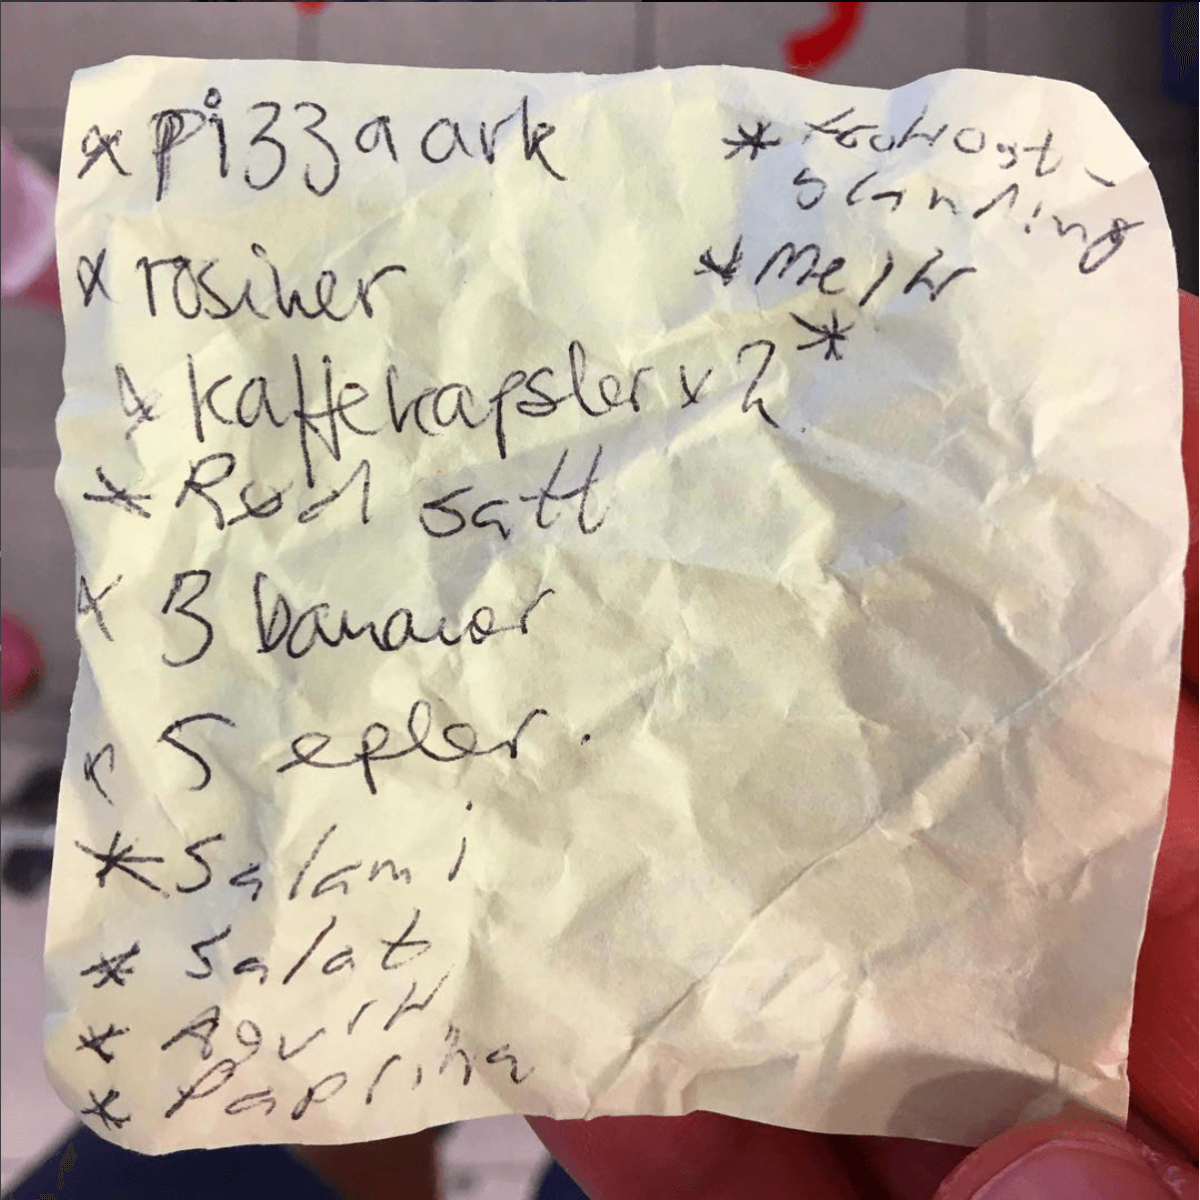 * pizzaark
* rosiner
* kaffekapsler x 2
* Rød saft
* 3 bananer
* 5 epler.
* Salami
* Salat
* Agurk
* Paprika
* frokost-
blanding
* Melk
*